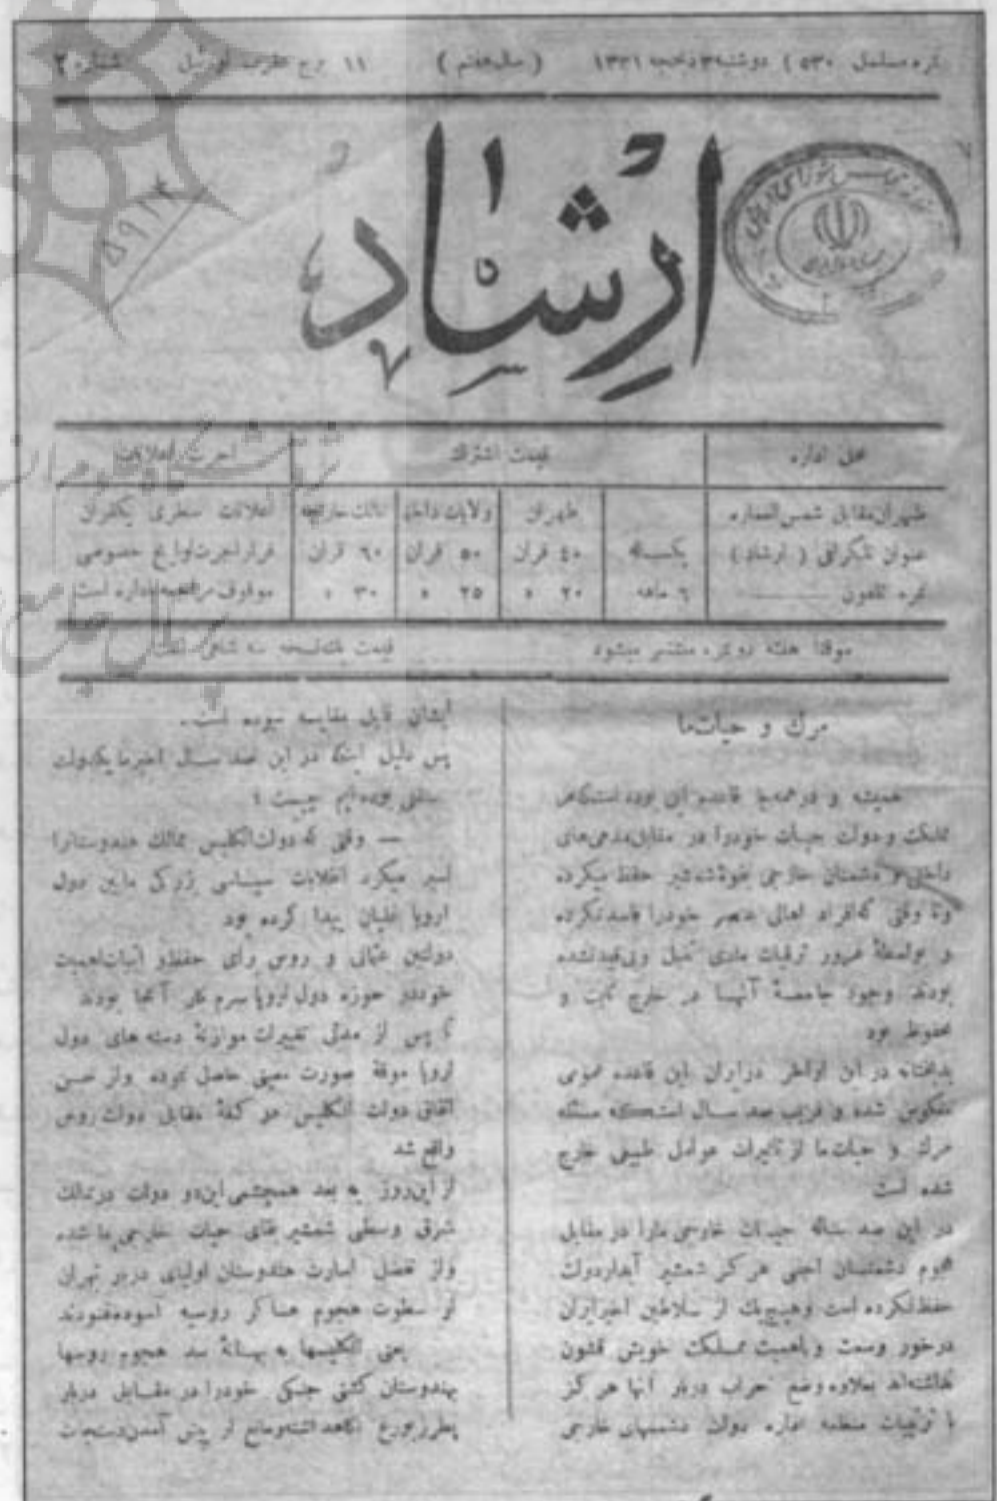 نمره مسلسل ( ٥٣٠ ) دوشنبه ٣ ذیحجه ١٣٣١ ( سال هفتم ) ١١ برج عقرب شماره ٢
ارشاد
محل اداره
طهران مقابل شمس‌العماره
عنوان تلگرافی ( ارشاد )
نمره تلفون
قیمت اشتراك
طهران ولایات داخله ممالك خارجه
یکساله ٤٠ قران ٥٠ قران ٦٠ قران
٦ ماهه ٢٠ » ٢٥ » ٣٠ »
اجرت اعلانات
اعلانات سطری یکقران
قرار اجرت لوایح خصوصی
موقوف بدفتر اداره است
موقتا هفته دو نمره منتشر میشود
قیمت یك نسخه سه شاهی است
مرك و حیات ما
همیشه و در همه‌جا قاعده این بوده است که هر
مملکت و دولت حیات خودرا در مقابل مدعی‌های
داخلی و دشمنان خارجی بقوه شمشیر حفظ میکرده
وتا وقتی که افراد اهالی عنصر خودرا فاسد نکرده
و بواسطهٔ غرور ترقیات مادی تنبل و بی‌قید نشده
بودند وجود جامعهٔ آنها در خارج ثابت و
محفوظ بود
بدبختانه در این اواخر در ایران این قاعده عمومی
معکوس شده و قریب صد سال است که مسئله
مرك و حیات ما از تأثیرات عوامل طبیعی خارج
شده است
در این صد ساله حیات خارجی مارا در مقابل
هجوم دشمنان اجنبی هرگز شمشیر آبدار دولت
حفظ نکرده است و هیچیك از سلاطین اخیر ایران
درخور وسعت و باهمیت مملکت خویش قشون
نداشته‌اند بعلاوه وضع خراب دربار آنها هرگز
با ترتیبات منظمه اداره دولت دشمنهای خارجی
ایشان قابل مقایسه نبوده است .
پس دلیل اینکه در این صد سال اخیر ما یکدولت
بوده‌ایم چیست ؛
— وقتی که دولت انگلیس ممالك هندوستانرا
اسیر میکرد انقلابات سیاسی بزرگی مابین دول
اروپا غلیان پیدا کرده بود
دولتین عثمانی و روس برای حفظ و اثبات اهمیت
خود در حوزه دول اروپا سرگرم کار آنجا بودند
تا پس از مدتی تغییرات موازنهٔ دسته های دول
اروپا موقة صورت معینی حاصل نموده و از حسن
اتفاق دولت انگلیس در کفهٔ مقابل دولت روس
واقع شد
از این روز به بعد همچشمی این دو دولت در ممالك
شرق وسطی شمشیر بقای حیات خارجی ما شده
واز تفضل اسارت هندوستان اولیای دربار تهران
از سطوت هجوم عساکر روسیه آسوده غنودند
یعنی انگلیسها به بهانهٔ سد هجوم روسها
بهندوستان کشتی جنگی خودرا در مقابل دربار
پطرزبورغ نگاهداشته و مانع از پیش آمدن دستجات